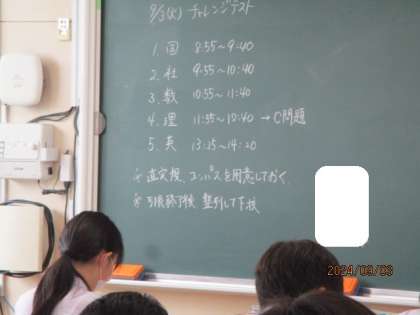 9/3(火) チャレンジテスト
1. 国 8:55～9:40
2. 社 9:55～10:40
3. 数 10:55～11:40
4. 理 11:55～12:40 → C問題
5. 英 13:35～14:20
※ 直定規、コンパスを用意しておく。
※ 5限終了後 整列して下校
2024/09/03